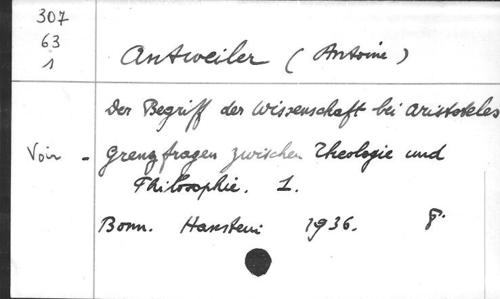 307
63
1
Antweiler (Antoine)
Der Begriff der Wissenschaft bei Aristoteles
Voir - Grenzfragen zwischen Theologie und
Philosophie. 1.
Bonn. Hanstein 1936. 8.